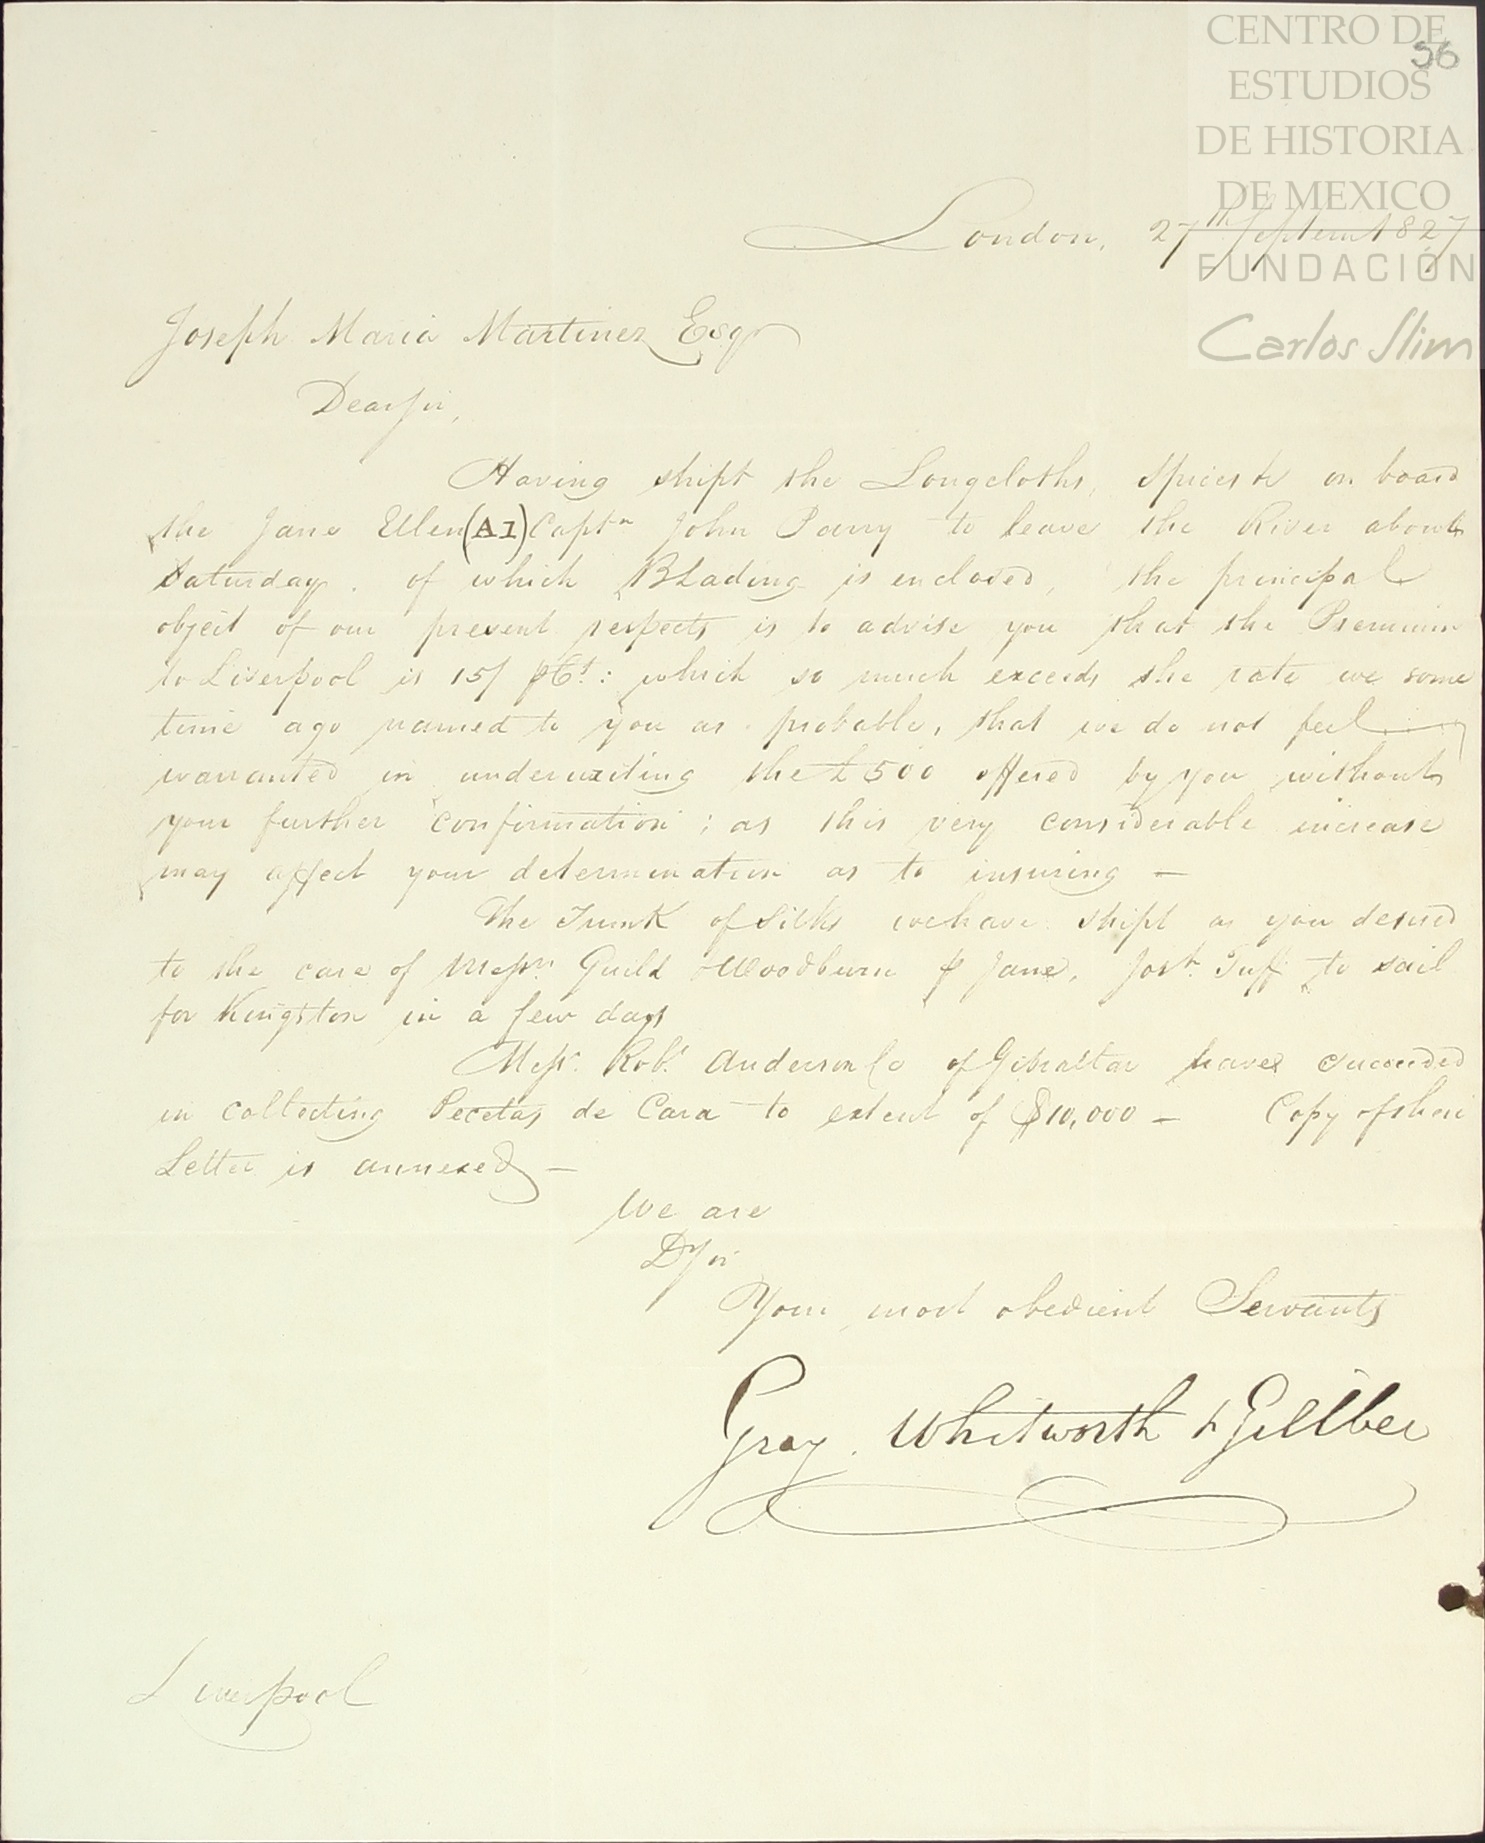 CENTRO DE
56
ESTUDIOS
DE HISTORIA
DE MEXICO
FUNDACIÓN
Carlos Slim
London, 27th Septem 1827
Joseph Maria Martinez Esqr
Dear Sir,
Having shipt the Longcloths, Spices &c on board
the Jane Ellen (A1) Captn John Parry to leave the River about
Saturday. of which B Lading is enclosed, the principal
object of our present respects is to advise you that the Premium
to Liverpool is 15/ pCt: which so much exceeds the rate we some
time ago named to you as probable, that we do not feel
warranted in underwriting the £500 offered by you without
your further confirmation; as this very considerable increase
may affect your determination as to insuring —
The Trunk of Silks we have shipt as you desired
to the care of Messrs Guild & Woodburn p Jane, Tuff to sail
for Kingston in a few days
Messrs Robt Anderson Co of Gibraltar have succeeded
in collecting Pecetas de Cara to extent of $10,000 — Copy of their
Letter is annexed —
We are
Dr Sir
Your most obedient Servants
Gray, Whitworth & Gillbee
Liverpool